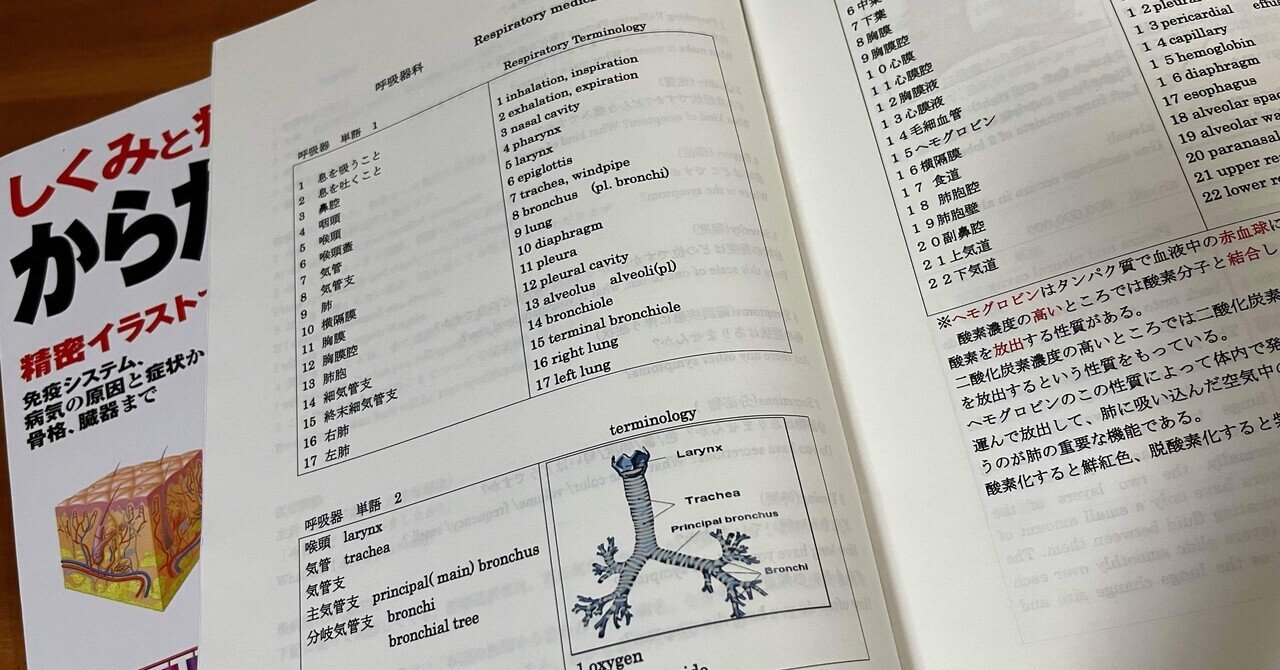 しくみと
からだ
精密イラスト
免疫システム、
病気の原因と症状か
骨格、臓器まで
Respiratory medicine
呼吸器科
Respiratory Terminology
呼吸器 単語 1
1 息を吸うこと
2 息を吐くこと
3 鼻腔
4 咽頭
5 喉頭
6 喉頭蓋
7 気管
8 気管支
9 肺
10 横隔膜
11 胸膜
12 胸膜腔
13 肺胞
14 細気管支
15 終末細気管支
16 右肺
17 左肺
1 inhalation, inspiration
2 exhalation, expiration
3 nasal cavity
4 pharynx
5 larynx
6 epiglottis
7 trachea, windpipe
8 bronchus (pl. bronchi)
9 lung
10 diaphragm
11 pleura
12 pleural cavity
13 alveolus alveoli(pl)
14 bronchiole
15 terminal bronchiole
16 right lung
17 left lung
terminology
呼吸器 単語 2
喉頭 larynx
気管 trachea
気管支
主気管支 principal( main) bronchus
分岐気管支 bronchi
bronchial tree
Larynx
Trachea
Principal bronchus
Bronchi
1 oxygen
6 中葉
7 下葉
8 胸膜
9 胸膜腔
10 心膜
11 心膜腔
12 胸膜液
13 心膜液
14 毛細血管
15 ヘモグロビン
16 横隔膜
17 食道
18 肺胞腔
19 肺胞壁
20 副鼻腔
21 上気道
22 下気道
12 pleural
13 pericardial effu
14 capillary
15 hemoglobin
16 diaphragm
17 esophagus
18 alveolar spac
19 alveolar wal
20 paranasal
21 upper re
22 lower re
※ヘモグロビンはタンパク質で血液中の赤血球に
酸素濃度の高いところでは酸素分子と結合し
酸素を放出する性質がある。
二酸化炭素濃度の高いところでは二酸化炭素
を放出するという性質をもっている。
ヘモグロビンのこの性質によって体内で発
運んで放出して、肺に吸い込んだ空気中の
うのが肺の重要な機能である。
酸素化すると鮮紅色、脱酸素化すると紫